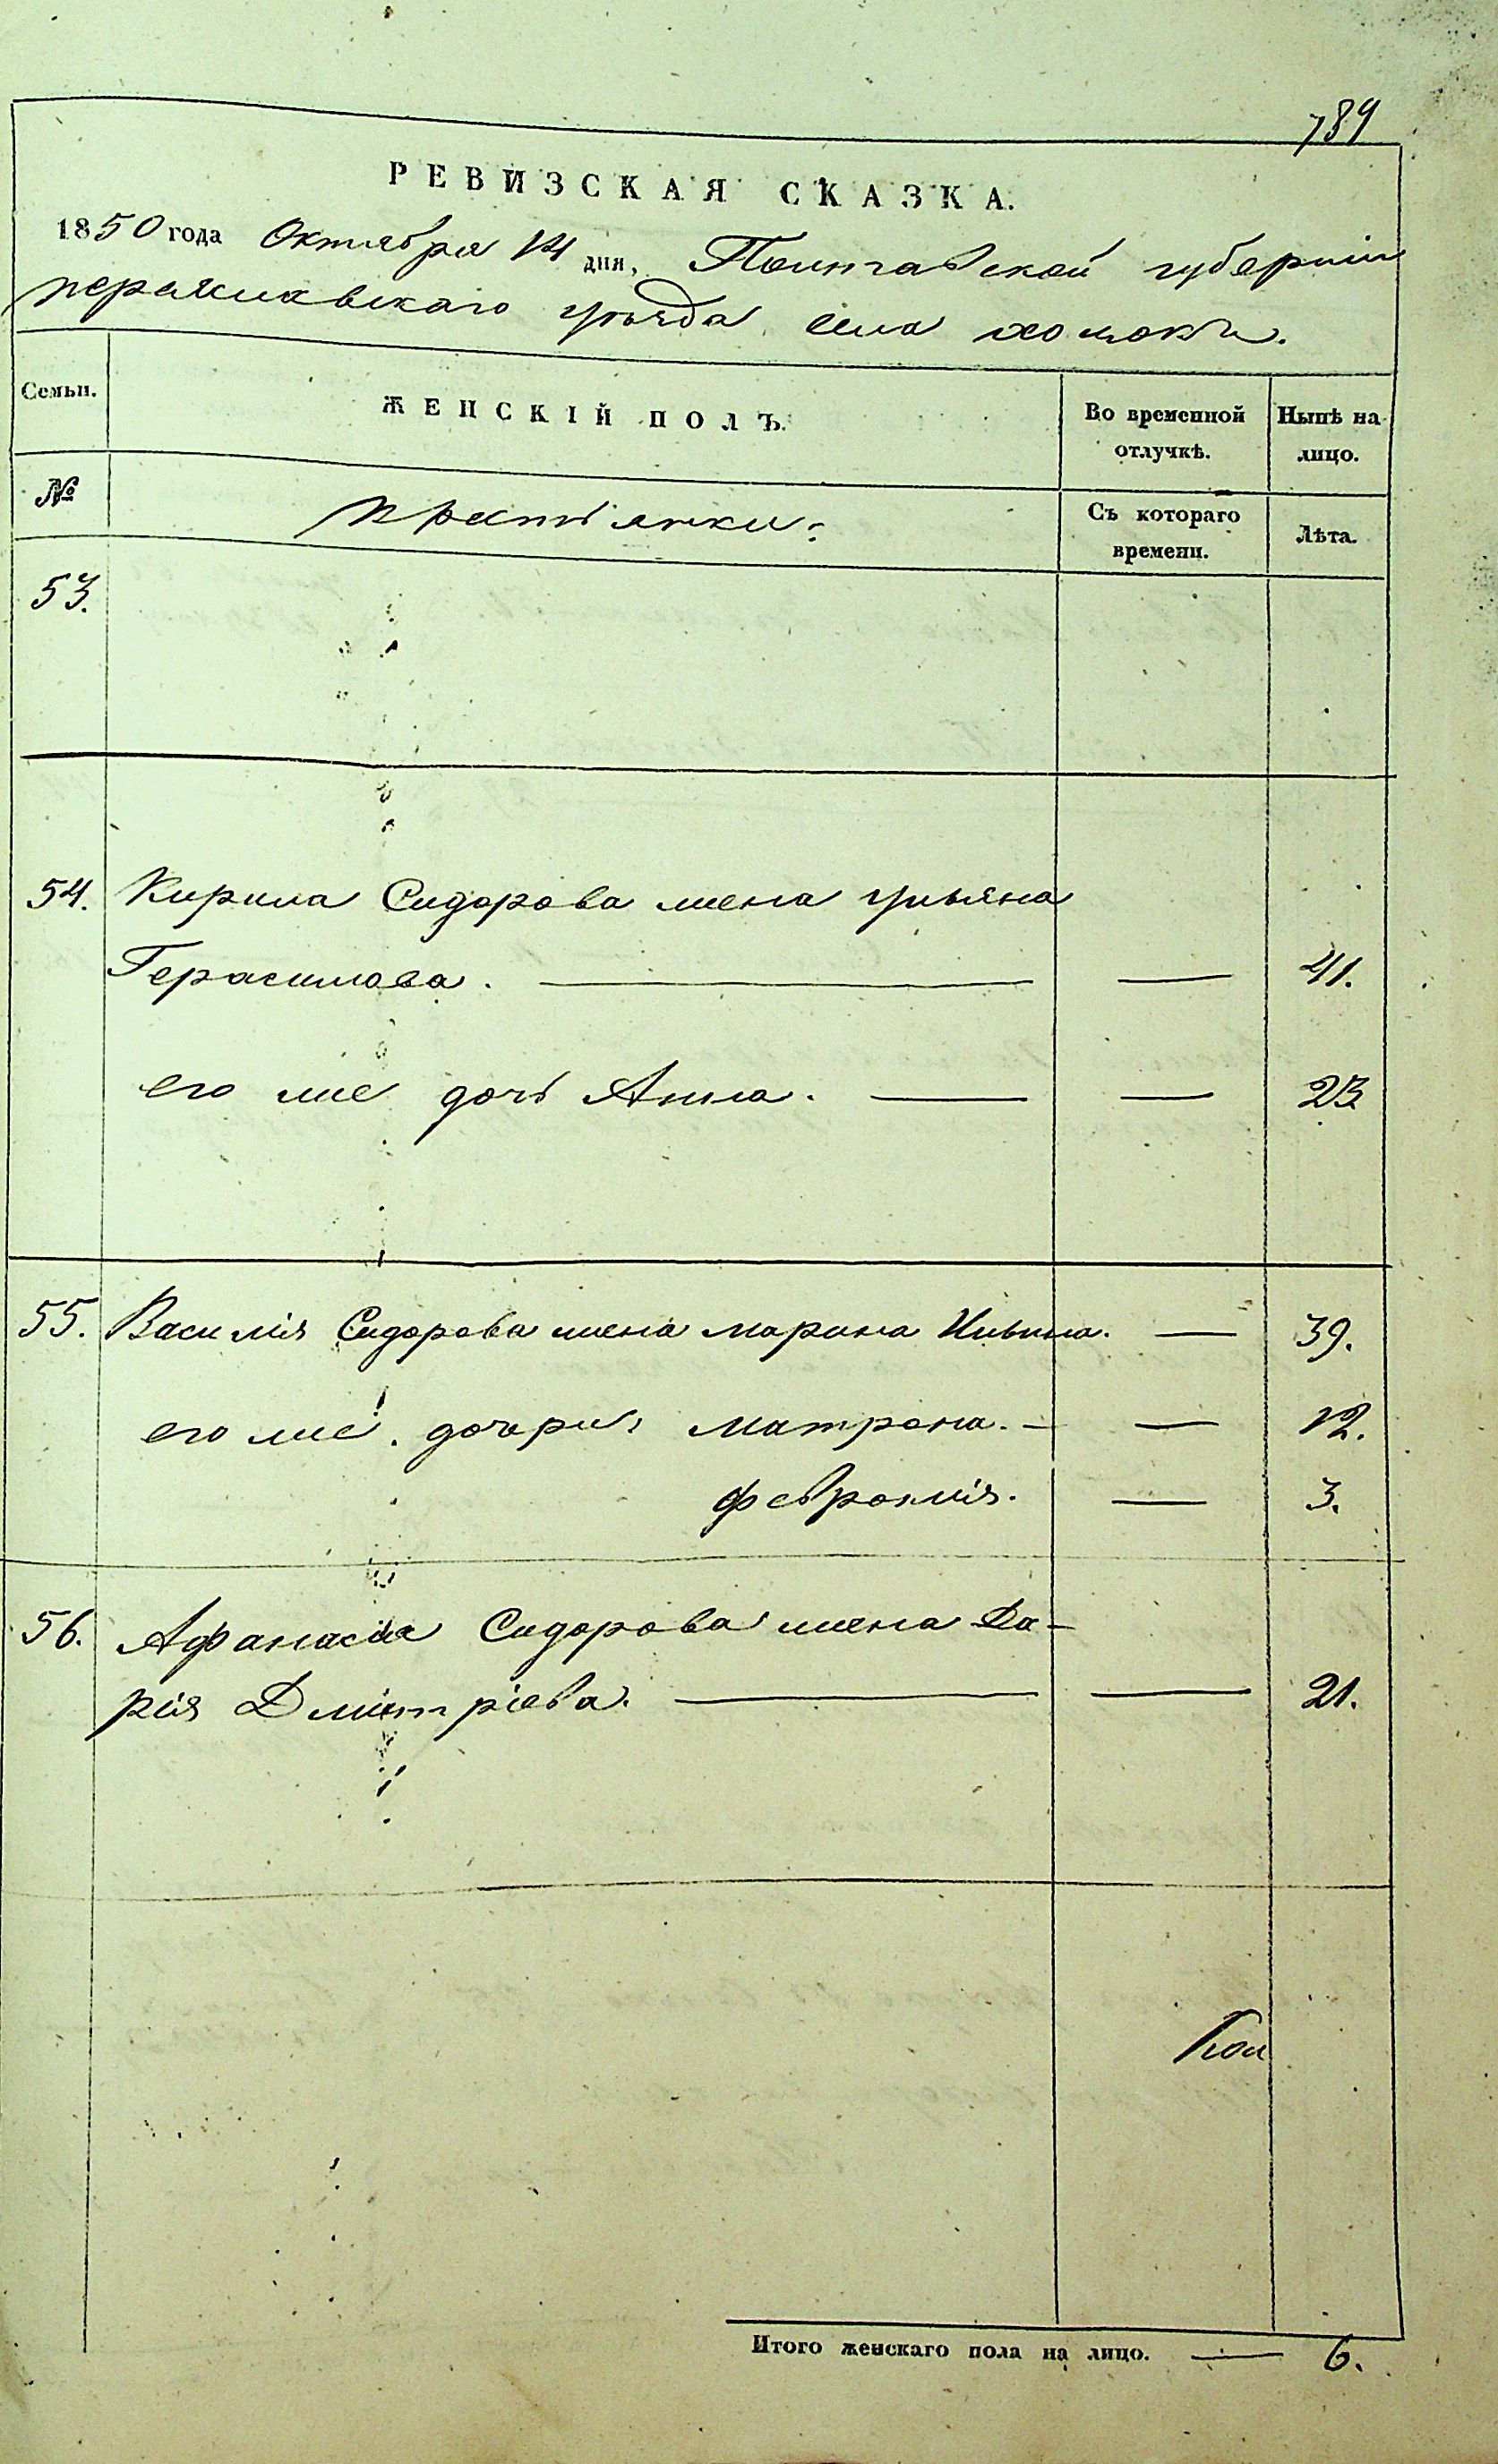 789
РЕВИЗСКАЯ СКАЗКА.
1850 года Октября 14 дня, Полтавской губерніи
переяславскаго уѣзда села хоцокъ.
Семьи. ЖЕНСКІЙ ПОЛЪ. Во временной отлучкѣ. Нынѣ на лицо.
№ крестьянки: Съ котораго времени. Лѣта.
53.
54. Кирила Сидорова жена Ульяна
Герасимова. — — 41.
его же дочь Анна. — — 23
55. Василія Сидорова жена марина Ильина. — 39.
его же дочери: матрона. — — 12.
февронія. — 3.
56. Афанасія Сидорова жена Да-
рія Дмитріева. — — 21.
Итого женскаго пола на лицо. — 6.